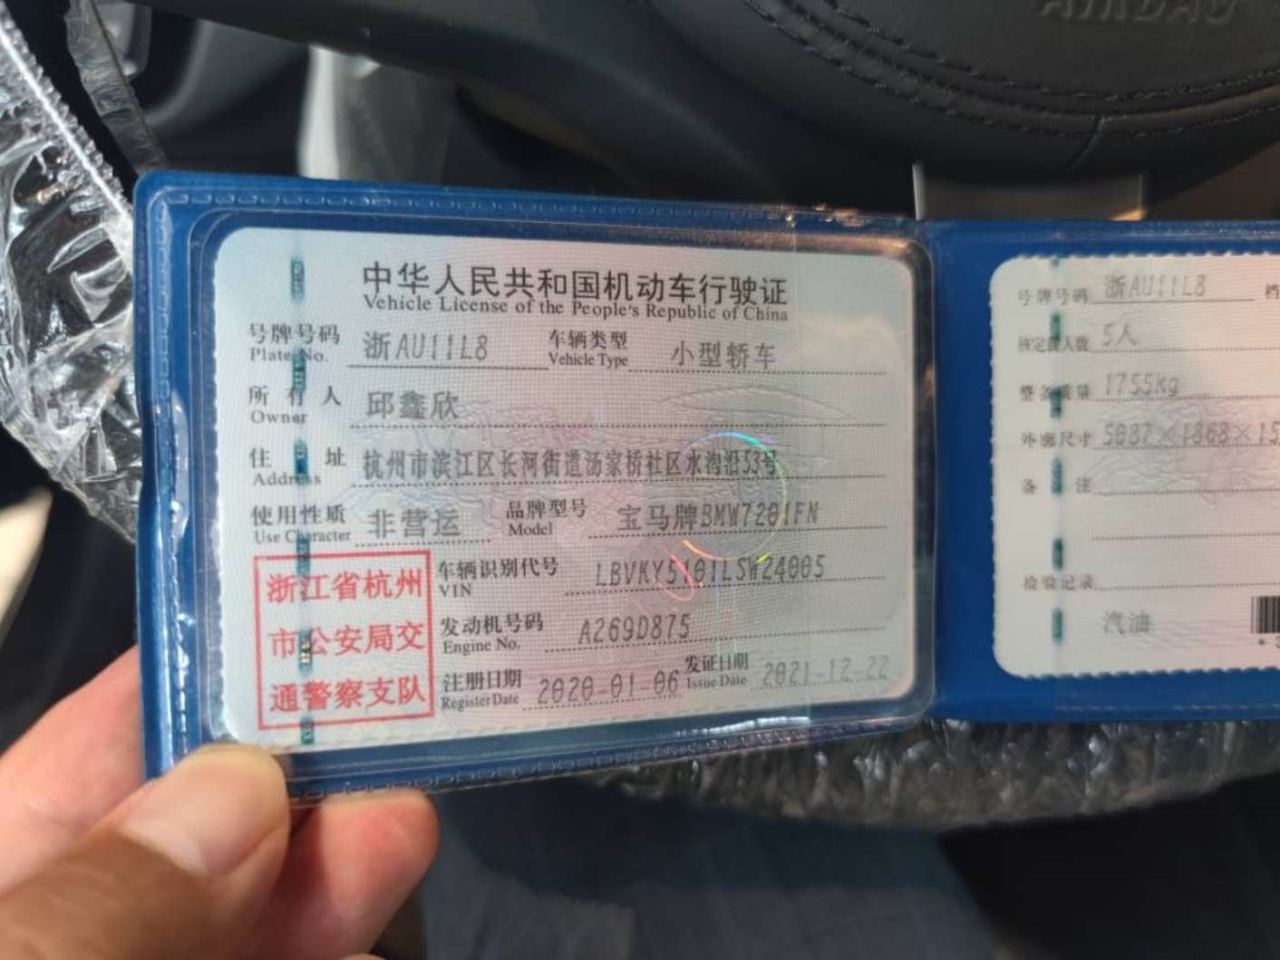 AIRBAG
中华人民共和国机动车行驶证
Vehicle License of the People's Republic of China
号牌号码 浙AU11L8 车辆类型 小型轿车
Plate No. Vehicle Type
所有人 邱鑫欣
Owner
住址 杭州市滨江区长河街道汤家桥社区水沟沿53号
Address
使用性质 非营运 品牌型号 宝马牌BMW7201FN
Use Character Model
浙江省杭州
市公安局交
通警察支队
车辆识别代号 LBVKY5101LSW24005
VIN
发动机号码 A269D875
Engine No.
注册日期 2020-01-06 发证日期 2021-12-22
Register Date Issue Date
号牌号码 浙AU11L8 档
核定载人数 5人
整备质量 1755kg
外廓尺寸 5087×1868×15
备注
检验记录
汽油